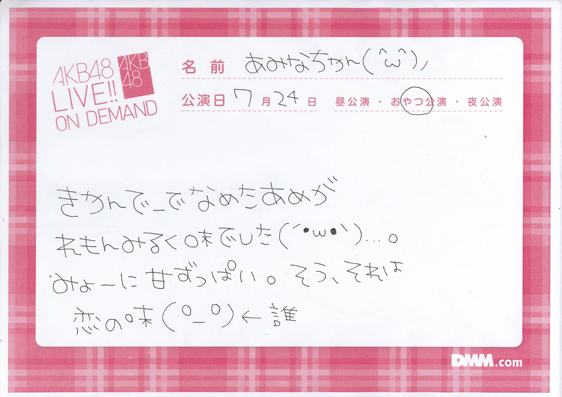 AKB48
LIVE!!
ON DEMAND
AKB
48
名前 あみなちゃん(^ω^)ノ
公演日 7月24日 昼公演・おやつ公演・夜公演
きかんでーでなめたあめが
れもんみるく味でした(´•ω•`)…。
みょーに甘ずっぱい。そう、それは
恋の味(○_○)←誰
DMM.com